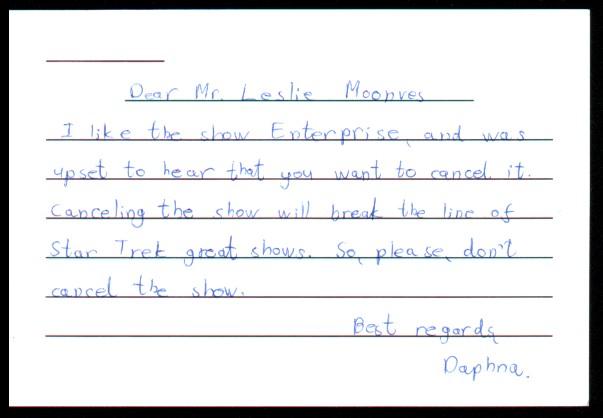 Dear Mr. Leslie Moonves
I like the show Enterprise, and was
upset to hear that you want to cancel it.
Canceling the show will break the line of
Star Trek great shows. So, please, don't
cancel the show.
Best regards
Daphna.